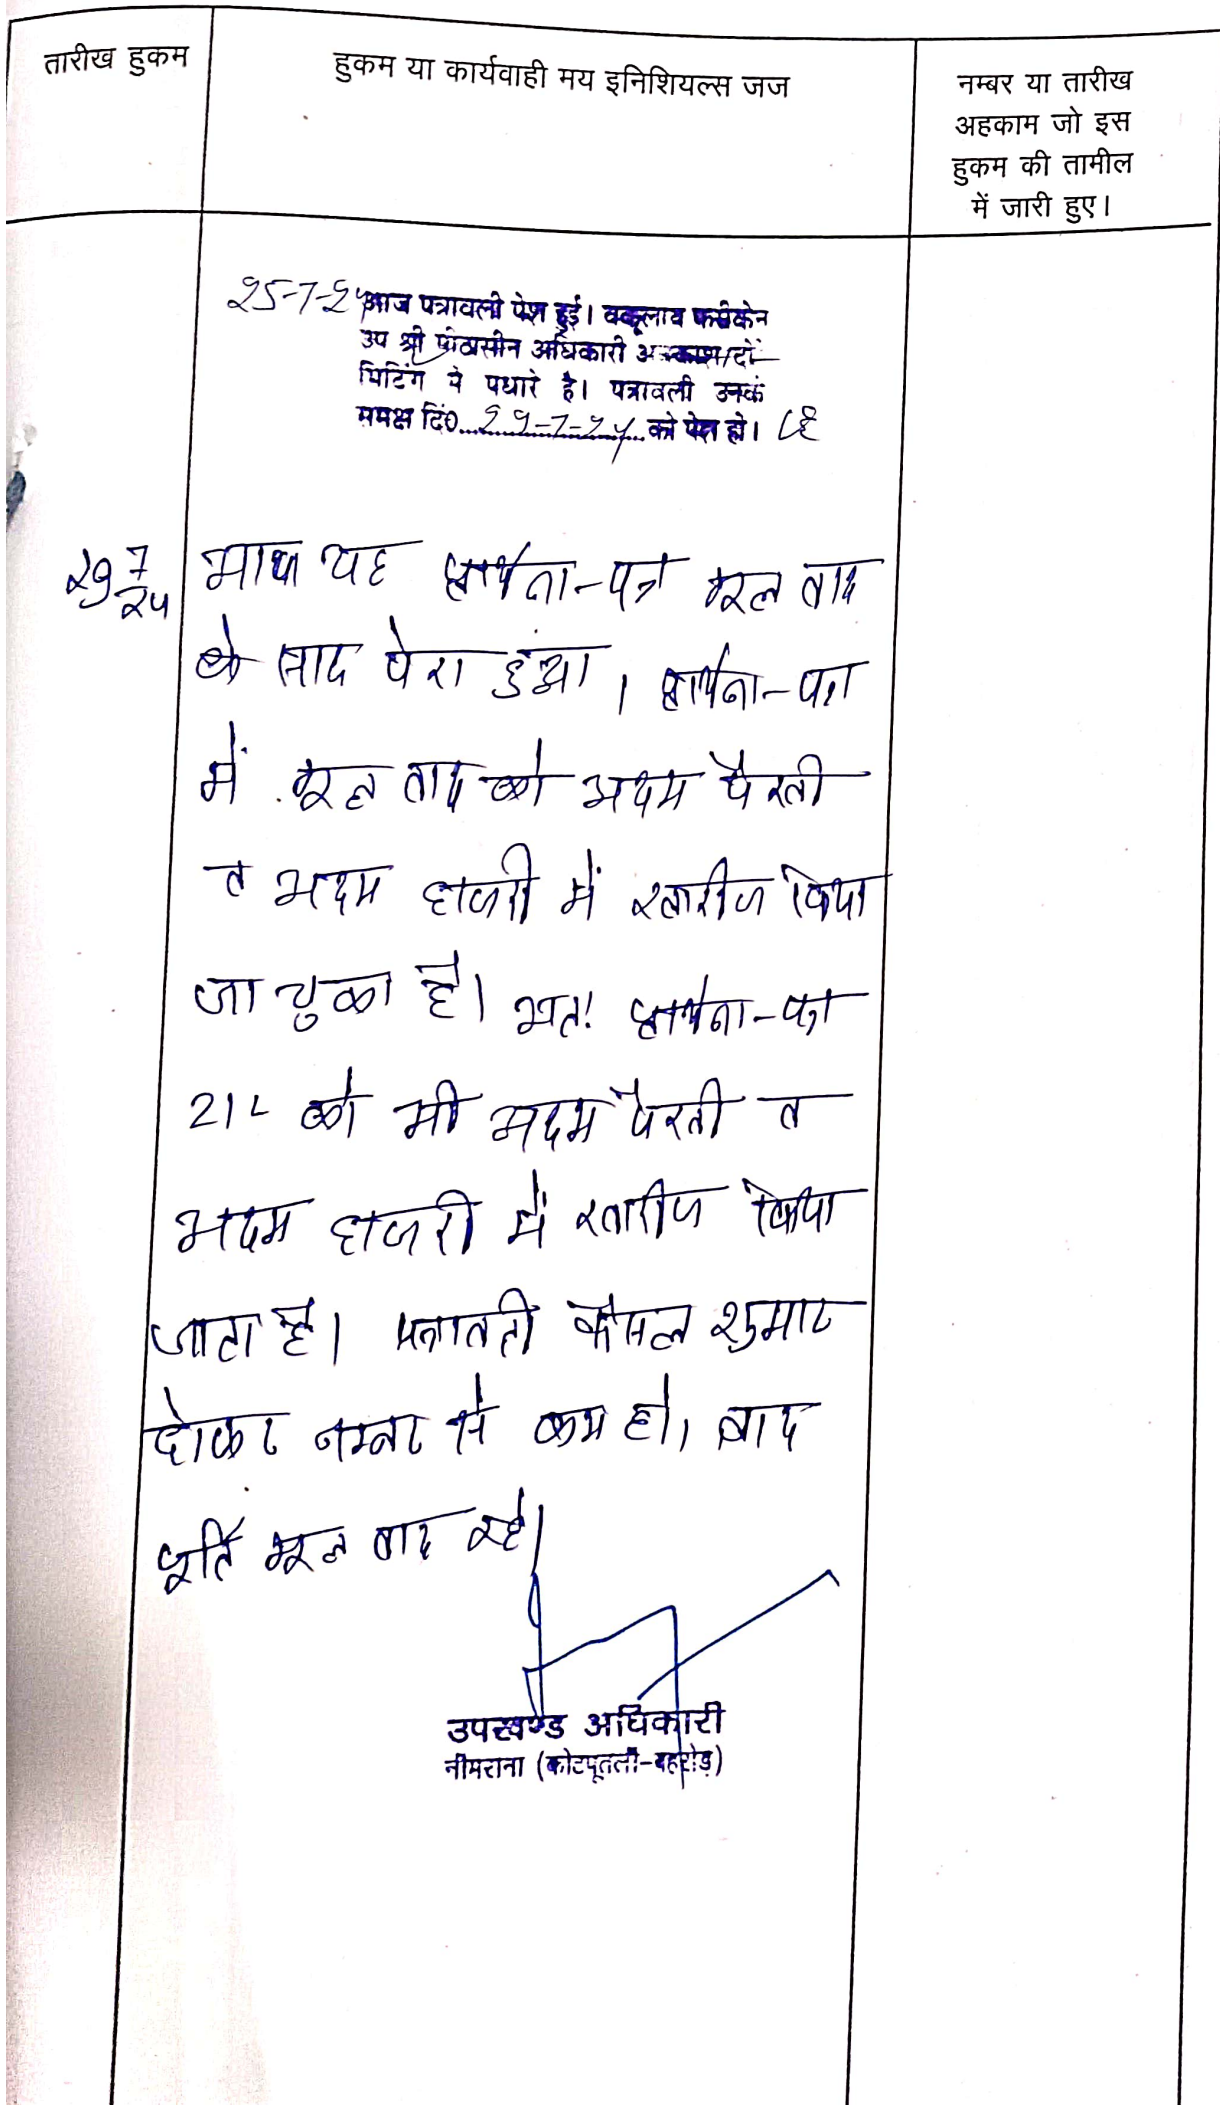 तारीख हुकम
हुकम या कार्यवाही मय इनिशियल्स जज
नम्बर या तारीख
अहकाम जो इस
हुकम की तामील
में जारी हुए।
25-7-24 आज पत्रावली पेश हुई। वकूलाय फरीकेन
उप श्री पीठासीन अधिकारी
मिटिंग में पधारे है। पत्रावली उनके
समक्ष दि० को पेश हो।
29 7 आज यह प्रार्थना-पत्र मूल वाद
के साथ पेश हुआ। प्रार्थना-पत्र
में मूल वाद को अदम पैरवी
व अदम हाजरी में खारीज किया
जा चुका है। अतः प्रार्थना-पत्र
212 को भी अदम पैरवी व
अदम हाजरी में खारीज किया
जाता है। पत्रावली फैसल शुमार
होकर नम्बर से कम हो, बाद
पूर्ति मूल वाद रहे।
उपखण्ड अधिकारी
नीमराना (कोटपूतली-बहरोड़)